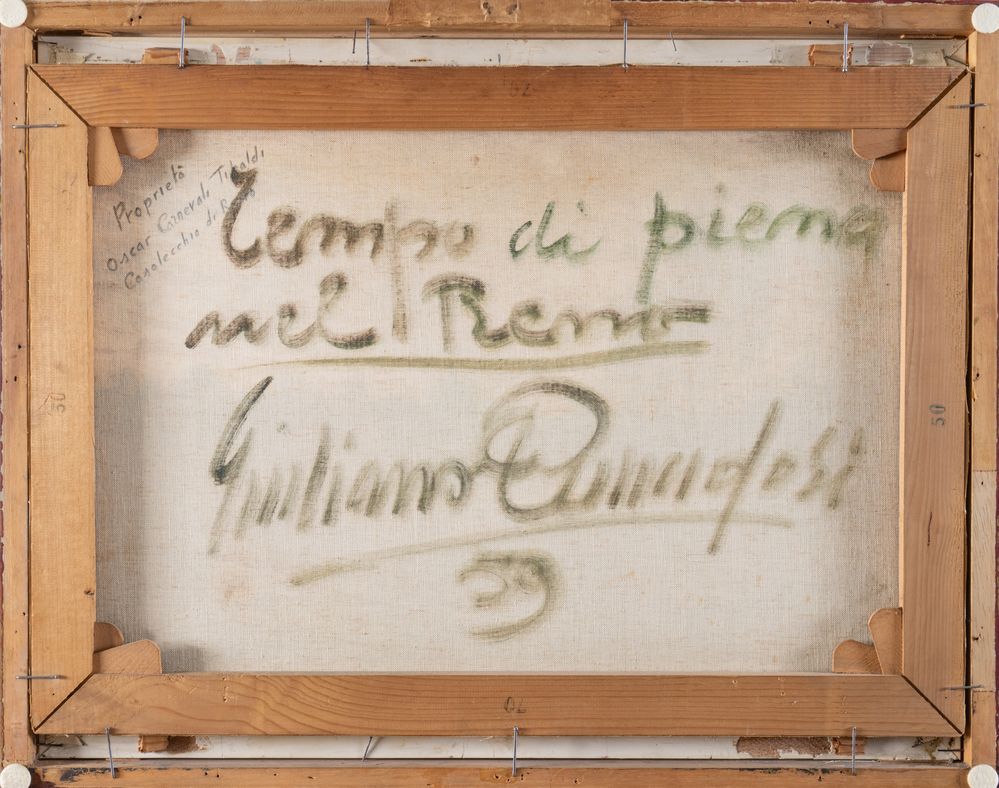 70
Proprietà
Oscar Carnevali Tibaldi
Casalecchio di Reno
Tempo di piena
nel Reno
Giuliano
59
50
50
70